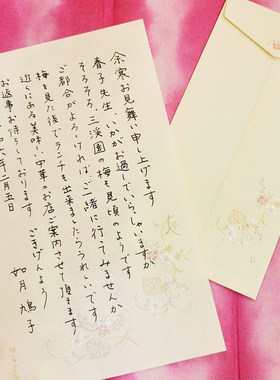 余寒お見舞い申し上げます
春子先生、いかがお過しでいらっしゃいますか
そろそろ、三溪園の梅も見頃のようです
ご都合がよろしければ、ご一緒に行ってみませんか
梅を見た後でランチも出来ましたらうれしいです
近くにある美味しい中華のお店ご案内させて頂きます
お返事お待ちしております ごきげんよう
年二月五日
如月 鳩子